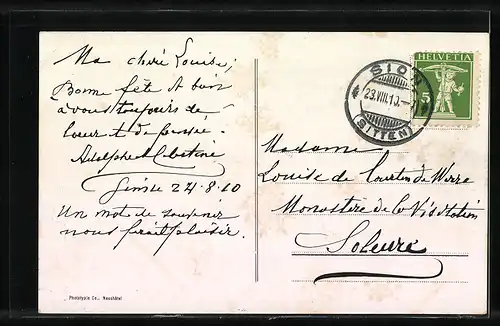 Ma chère Louise,
Bonne fête et bien
à vous toujours de
cœur et de pensée.
Adolphe et
22.8.10
Un mot de souvenir
nous ferait plaisir.
Phototypie Co., Neuchâtel
SION
23.VIII.10.
(SITTEN)
HELVETIA
5
Madame
Louise de Courten de Werra
Monastère de la Visitation
Soleure